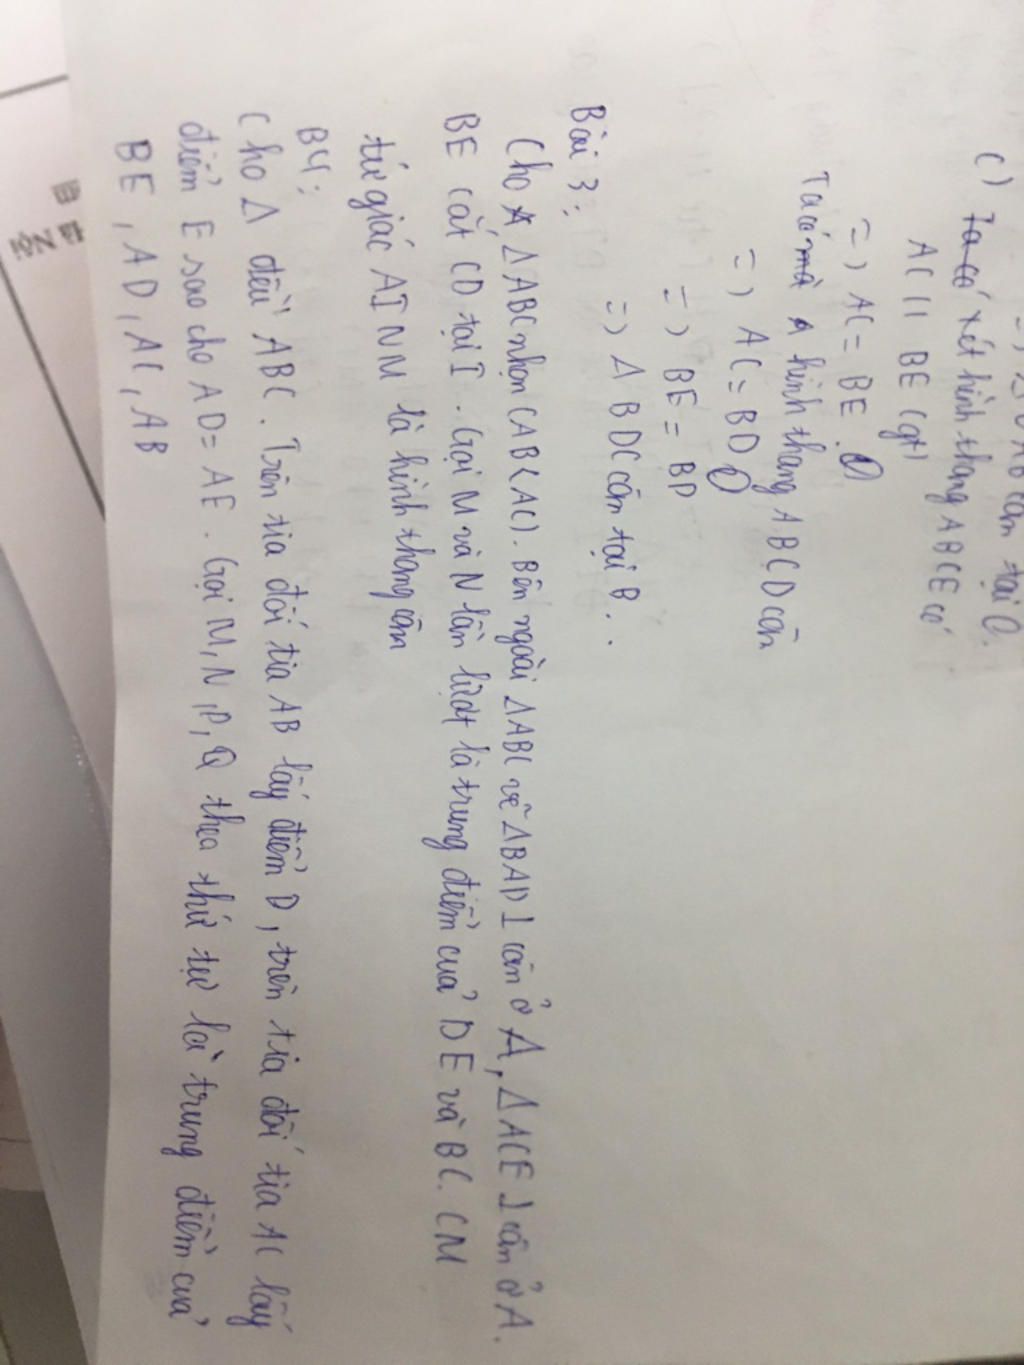 cân tại O.
c) Ta có xét hình thang ABCE có
AC // BE (gt)
=) AC = BE. ①
Ta có mà hình thang ABCD cân
=) AC = BD ②
=) BE = BD
=) Δ BDC cân tại B..
Bài 3:
Cho Δ ABC nhọn (AB<AC). Bên ngoài ΔABC vẽ ΔBAD ⊥ cân ở A, ΔACE ⊥ cân ở A.
BE cắt CD tại I. Gọi M và N lần lượt là trung điểm của DE và BC. CM
tứ giác AINM là hình thang cân
B4:
Cho Δ đều ABC. Trên tia đối tia AB lấy điểm D, trên tia đối tia AC lấy
điểm E sao cho AD= AE. Gọi M, N, P, Q theo thứ tự là trung điểm của
BE, AD, AC, AB
Hà Nội